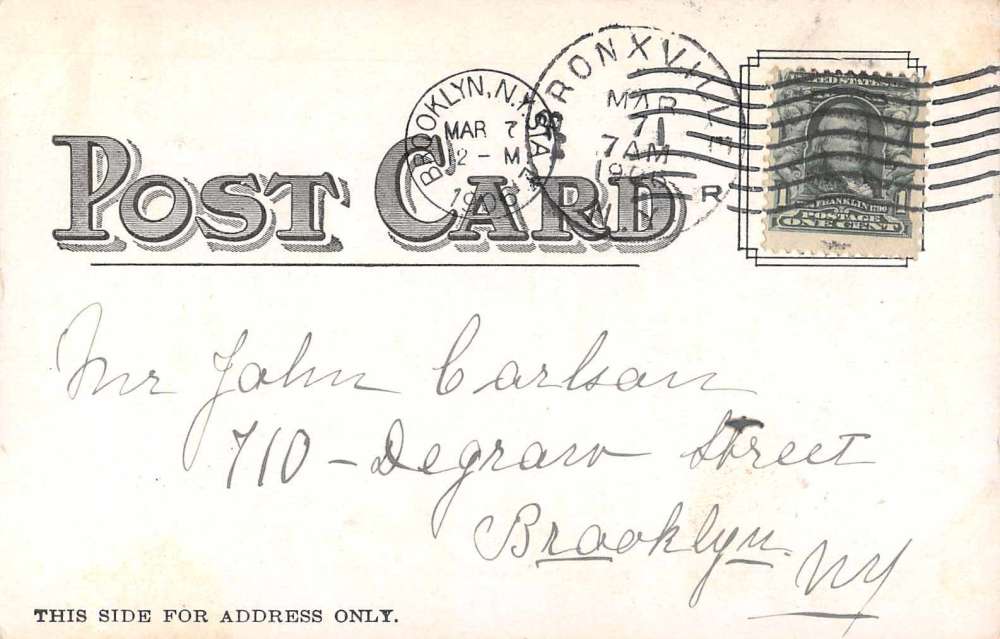 BRONXVILLE
MAR
7
7 AM
1906
N.Y.
R
BROOKLYN, N.Y.
STA
MAR 7
2 - M
1906
UNITED STATES
FRANKLIN 1790
POSTAGE
ONE CENT
POST CARD
Mr John Carlson
710 - Degraw Street
Brooklyn
NY
THIS SIDE FOR ADDRESS ONLY.